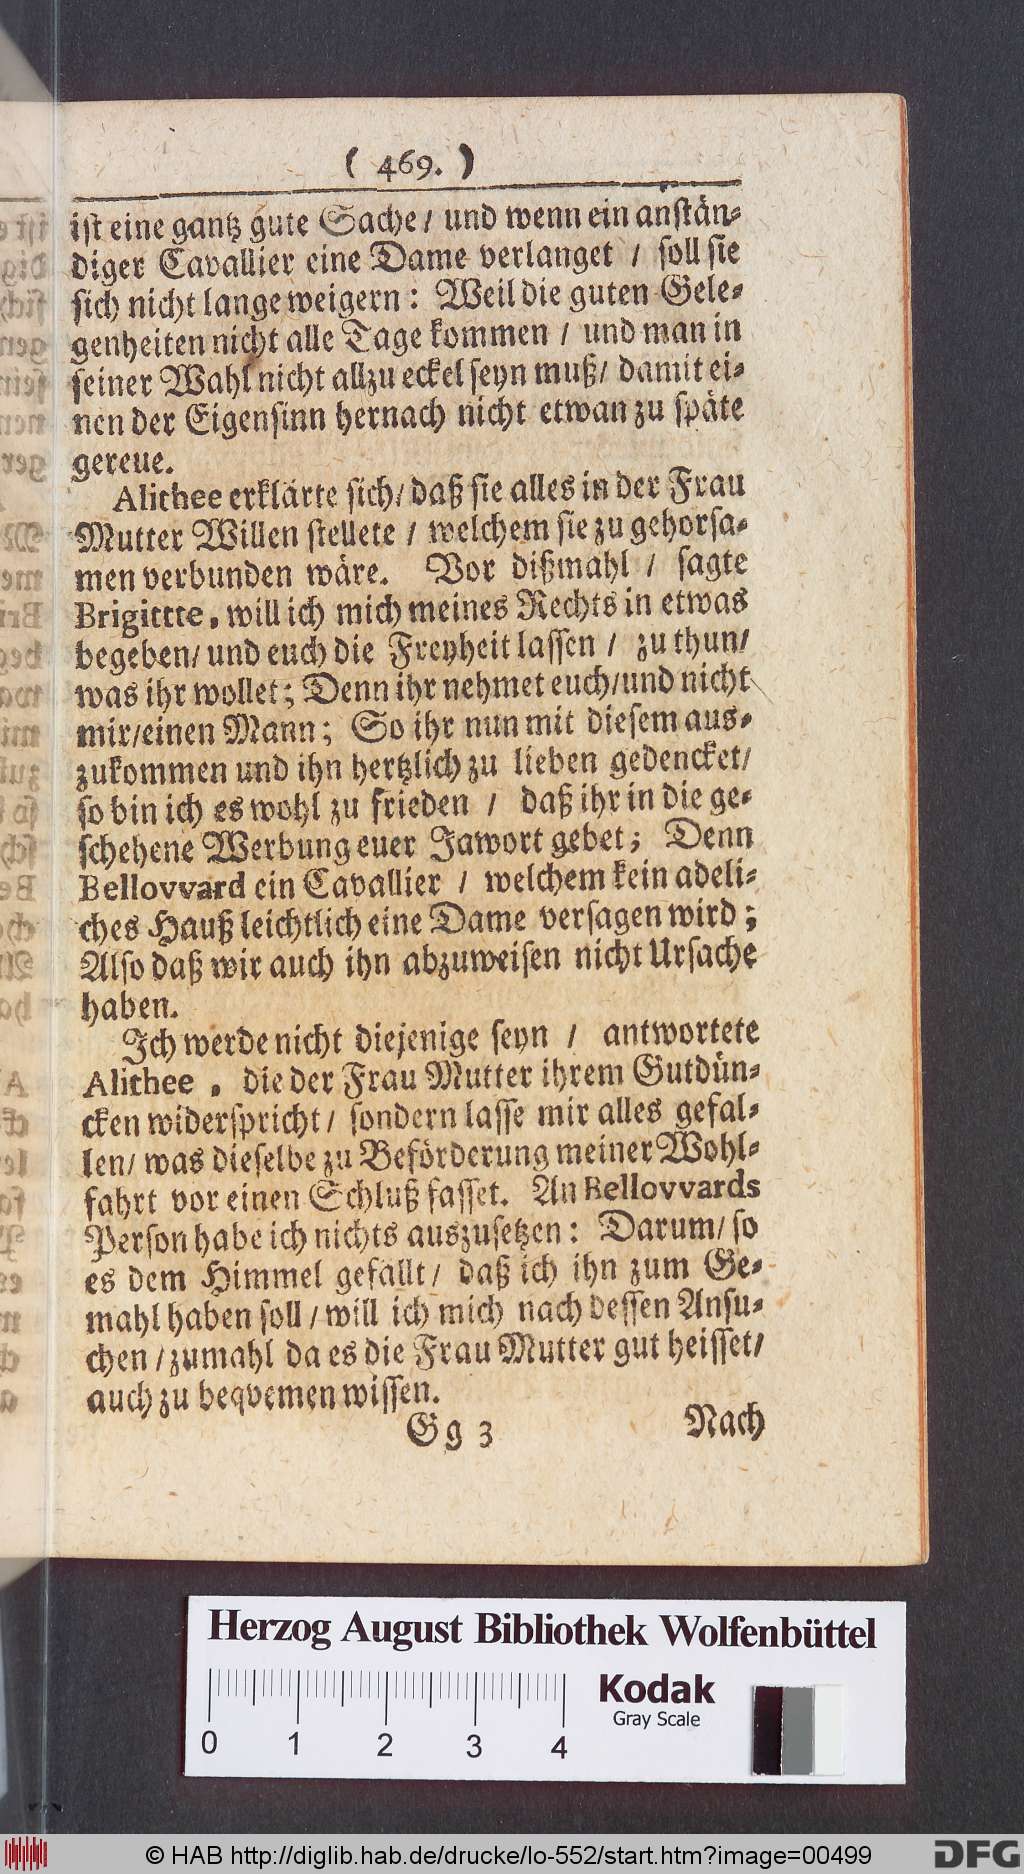 ( 469. )
ist eine gantz gute Sache / und wenn ein anstän-
diger Cavallier eine Dame verlanget / soll sie
sich nicht lange weigern: Weil die guten Gele-
genheiten nicht alle Tage kommen / und man in
seiner Wahl nicht allzu eckel seyn muß / damit ei-
nen der Eigensinn hernach nicht etwan zu späte
gereue.
Alithee erklärte sich / daß sie alles in der Frau
Mutter Willen stellete / welchem sie zu gehorsa-
men verbunden wäre. Vor dißmahl / sagte
Brigittte, will ich mich meines Rechts in etwas
begeben / und euch die Freyheit lassen / zu thun /
was ihr wollet; Denn ihr nehmet euch / und nicht
mir / einen Mann; So ihr nun mit diesem aus-
zukommen und ihn hertzlich zu lieben gedencket /
so bin ich es wohl zu frieden / daß ihr in die ge-
schehene Werbung euer Jawort gebet; Denn
Bellovvard ein Cavallier / welchem kein adeli-
ches Hauß leichtlich eine Dame versagen wird;
Also daß wir auch ihn abzuweisen nicht Ursache
haben.
Ich werde nicht diejenige seyn / antwortete
Alithee, die der Frau Mutter ihrem Gutdün-
cken widerspricht / sondern lasse mir alles gefal-
len / was dieselbe zu Beförderung meiner Wohl-
fahrt vor einen Schluß fasset. An Bellovvards
Person habe ich nichts auszusetzen: Darum / so
es dem Himmel gefällt / daß ich ihn zum Ge-
mahl haben soll / will ich mich nach dessen Ansu-
chen / zumahl da es die Frau Mutter gut heisset /
auch zu beqvemen wissen.
Gg 3 Nach
Herzog August Bibliothek Wolfenbüttel
0 1 2 3 4
Kodak
Gray Scale
© HAB http://diglib.hab.de/drucke/lo-552/start.htm?image=00499
DFG